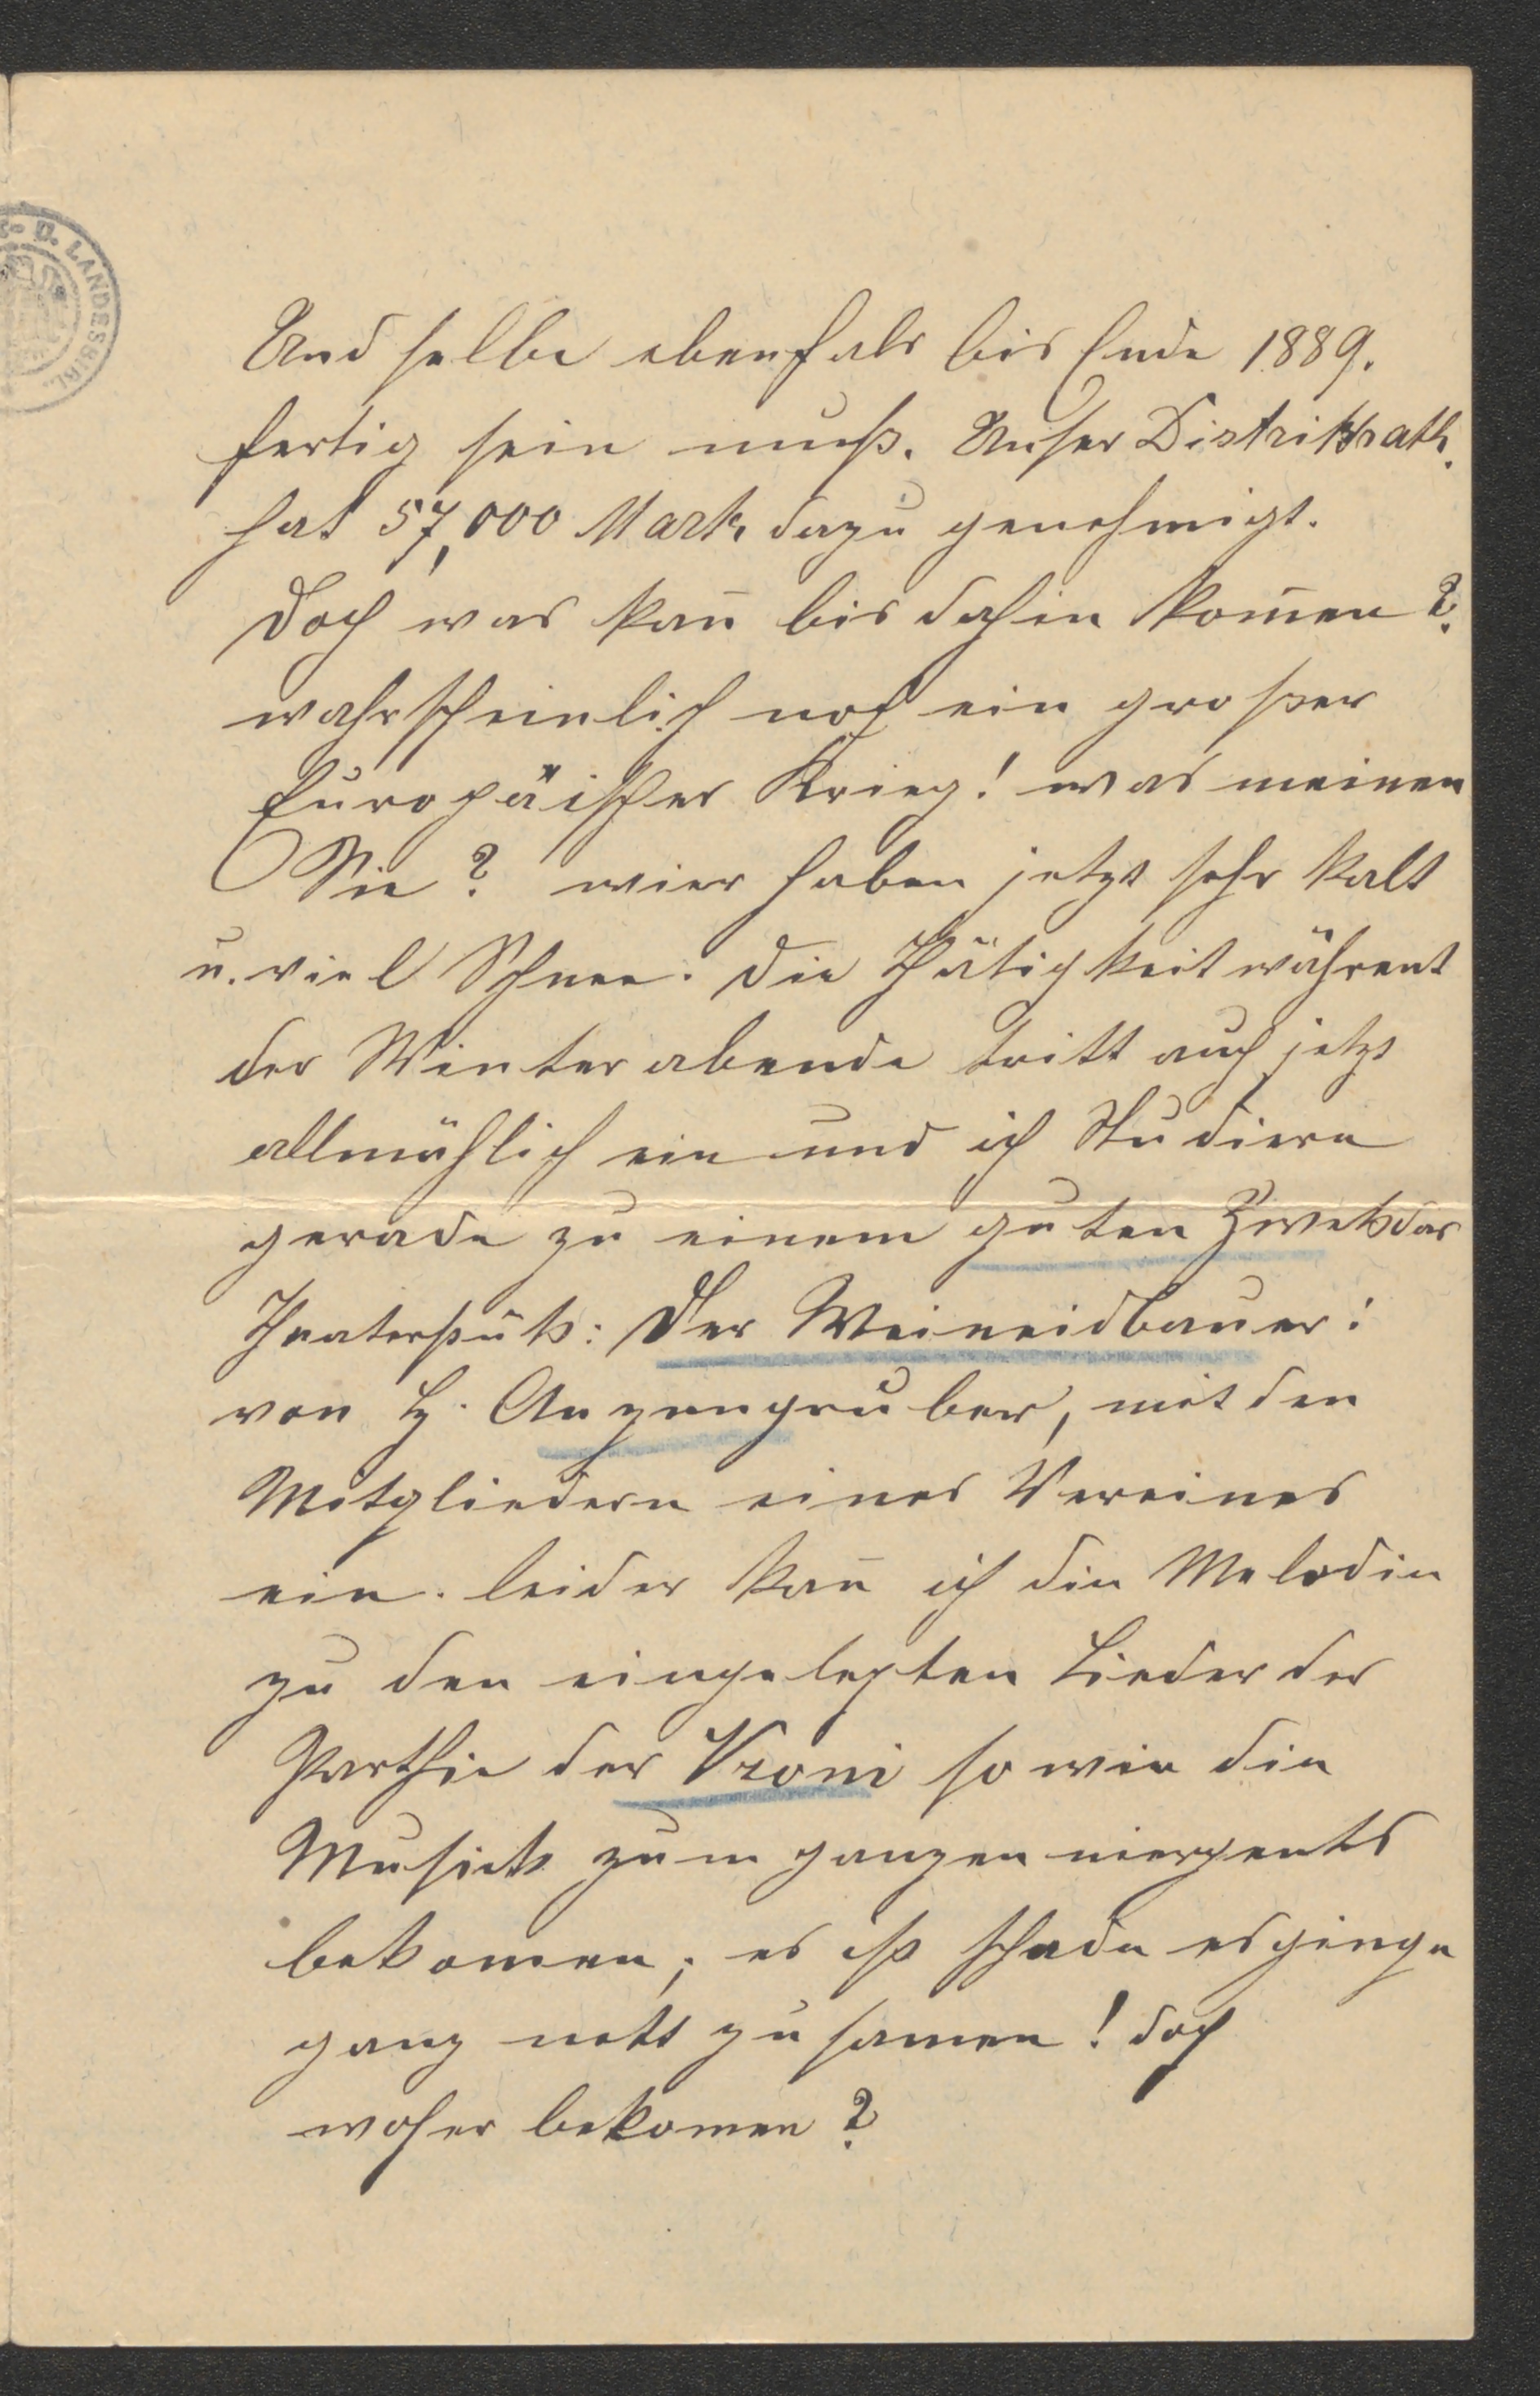 - D. LANDESBIBL.
Und selbe ebenfals bis Ende 1889.
fertig sein muß. Unser Distriktsrath.
hat 57,000 Mark dazu genehmigt.
Doch was kan̄ bis dahin kom̄en?
wahrscheinlich noch ein großer
Europäischer Krieg! was meinen
Sie? wier haben jetzt sehr kalt
u. viel Schnee. Die Thätigkeit währent
der Winterabende tritt auch jetzt
allmählich ein und ich Studiere
gerade zu einem guten Zwek das
Theaterstük: Der Meineidbauer:
von H. Anzengruber, mit den
Mitgliedern eines Vereines
ein. leider kan̄ ich die Melodie
zu den eingelegten Lieder der
Parthie der Vroni so wie die
Musick zum ganzen niergents
bekomen; es ist schade es ginge
ganz nett zusamen! doch
woher bekomen?